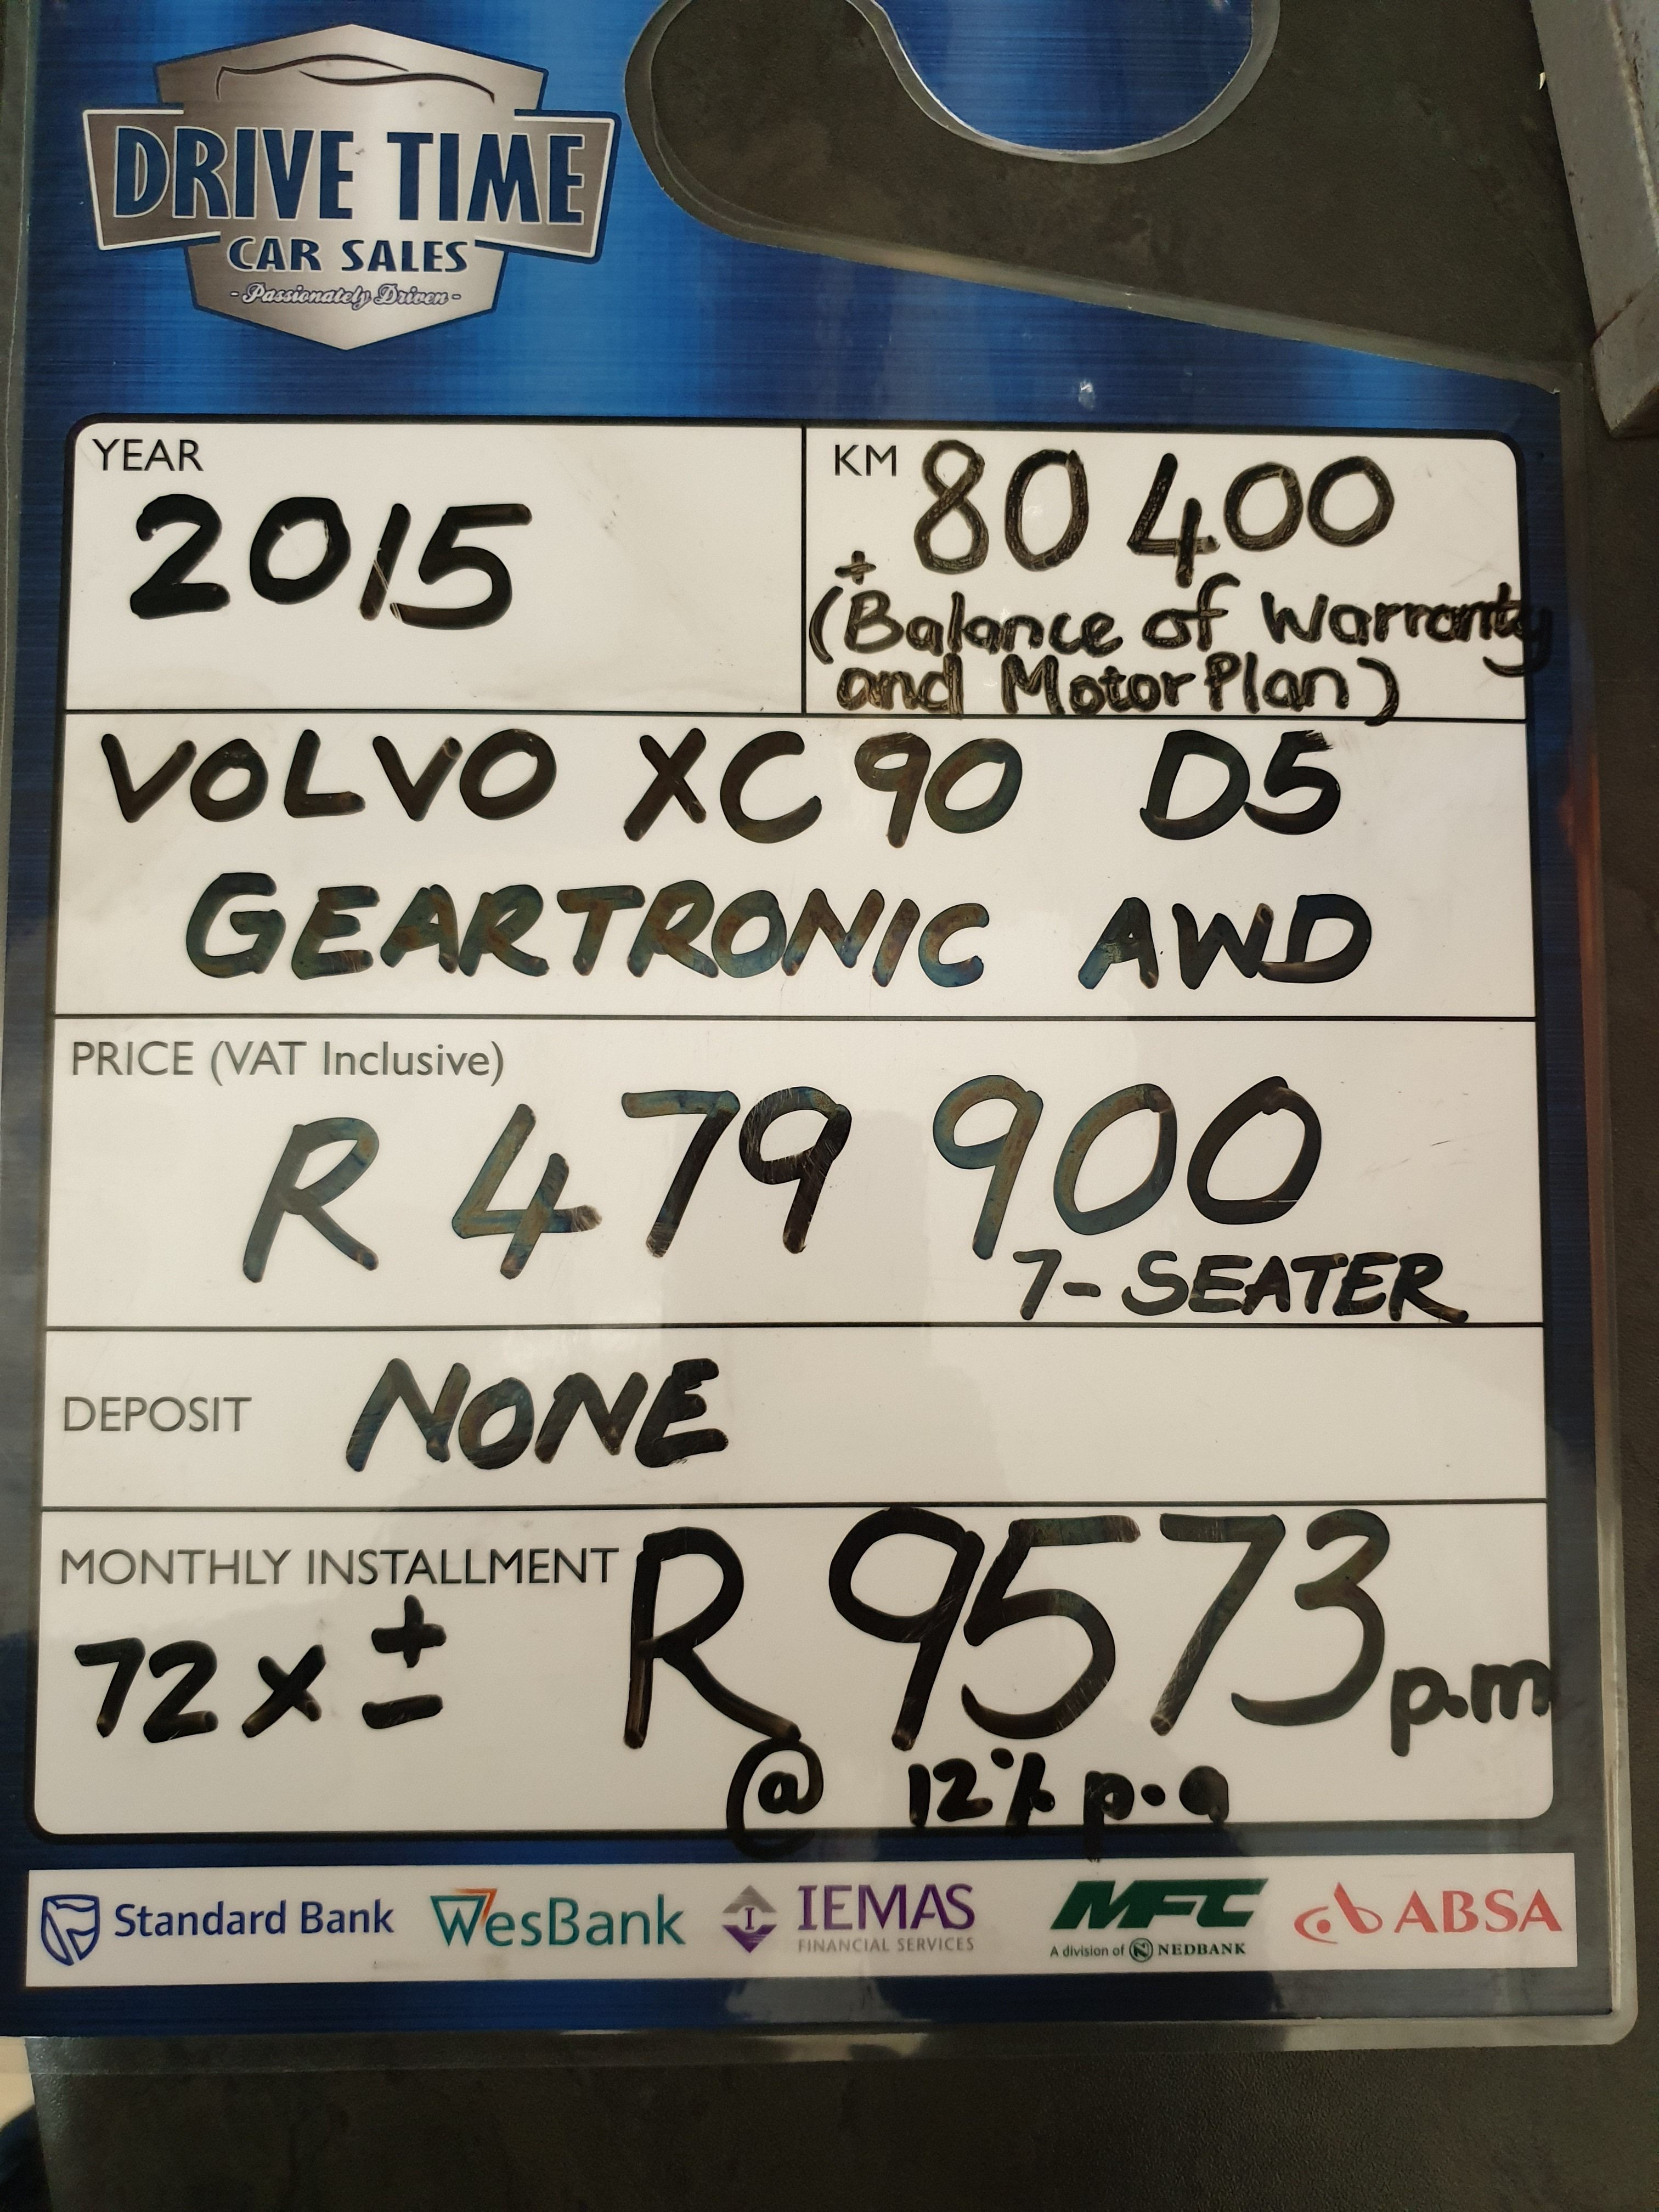 DRIVE TIME
CAR SALES
- Passionately Driven -
YEAR
2015
KM ± 80 400
(Balance of Warranty
and Motor Plan)
VOLVO XC90 D5
GEARTRONIC AWD
PRICE (VAT Inclusive)
R 479 900
7-SEATER
DEPOSIT NONE
MONTHLY INSTALLMENT
72 x ± R 9573 p.m
@ 12% p.a
Standard Bank WesBank IEMAS FINANCIAL SERVICES MFC A division of NEDBANK ABSA